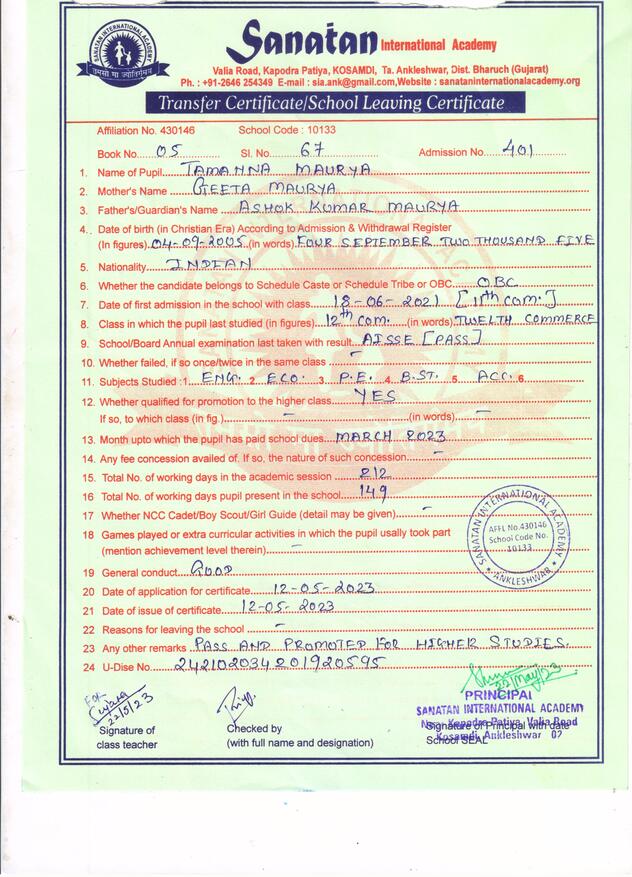 SANATAN INTERNATIONAL ACADEMY
तमसो मा ज्योतिर्गमय
Sanatan International Academy
Valia Road, Kapodra Patiya, KOSAMDI, Ta. Ankleshwar, Dist. Bharuch (Gujarat)
Ph. : +91-2646 254349 E-mail : sia.ank@gmail.com,Website : sanataninternationalacademy.org
Transfer Certificate/School Leaving Certificate
Affiliation No. 430146 School Code : 10133
Book No. 05 Sl. No. 67 Admission No. 401
1. Name of Pupil TAMANNA MAURYA
2. Mother's Name GEETA MAURYA
3. Father's/Guardian's Name ASHOK KUMAR MAURYA
4. Date of birth (in Christian Era) According to Admission & Withdrawal Register
(In figures) 04-09-2005 (in words) FOUR SEPTEMBER TWO THOUSAND FIVE
5. Nationality INDIAN
6. Whether the candidate belongs to Schedule Caste or Schedule Tribe or OBC OBC
7. Date of first admission in the school with class 18-06-2021 [11th COM.]
8. Class in which the pupil last studied (in figures) 12th COM. (in words) TWELTH COMMERCE
9. School/Board Annual examination last taken with result AISSE [PASS]
10. Whether failed, if so once/twice in the same class -
11. Subjects Studied :1. ENG. 2. ECO. 3. P.E. 4. B.ST. 5. ACC. 6.
12. Whether qualified for promotion to the higher class YES
If so, to which class (in fig.) - (in words) -
13. Month upto which the pupil has paid school dues MARCH 2023
14. Any fee concession availed of. If so, the nature of such concession -
15. Total No. of working days in the academic session 212
16 Total No. of working days pupil present in the school 149
17 Whether NCC Cadet/Boy Scout/Girl Guide (detail may be given) -
18 Games played or extra curricular activities in which the pupil usally took part
(mention achievement level therein) -
SANATAN INTERNATIONAL ACADEMY
AFFL No.430146
School Code No.
10133
★ ANKLESHWAR ★
19 General conduct GOOD
20 Date of application for certificate 12-05-2023
21 Date of issue of certificate 12-05-2023
22 Reasons for leaving the school -
23 Any other remarks PASS AND PROMOTED FOR HIGHER STUDIES.
24 U-Dise No. 242102034201920595
For
22/5/23
22/May/23
PRINCIPAL
SANATAN INTERNATIONAL ACADEMY
Near Kapodra Patiya, Valia Road
Kosamdi, Ankleshwar 02
Signature of
class teacher
Checked by
(with full name and designation)
Signature of Principal with date
School SEAL